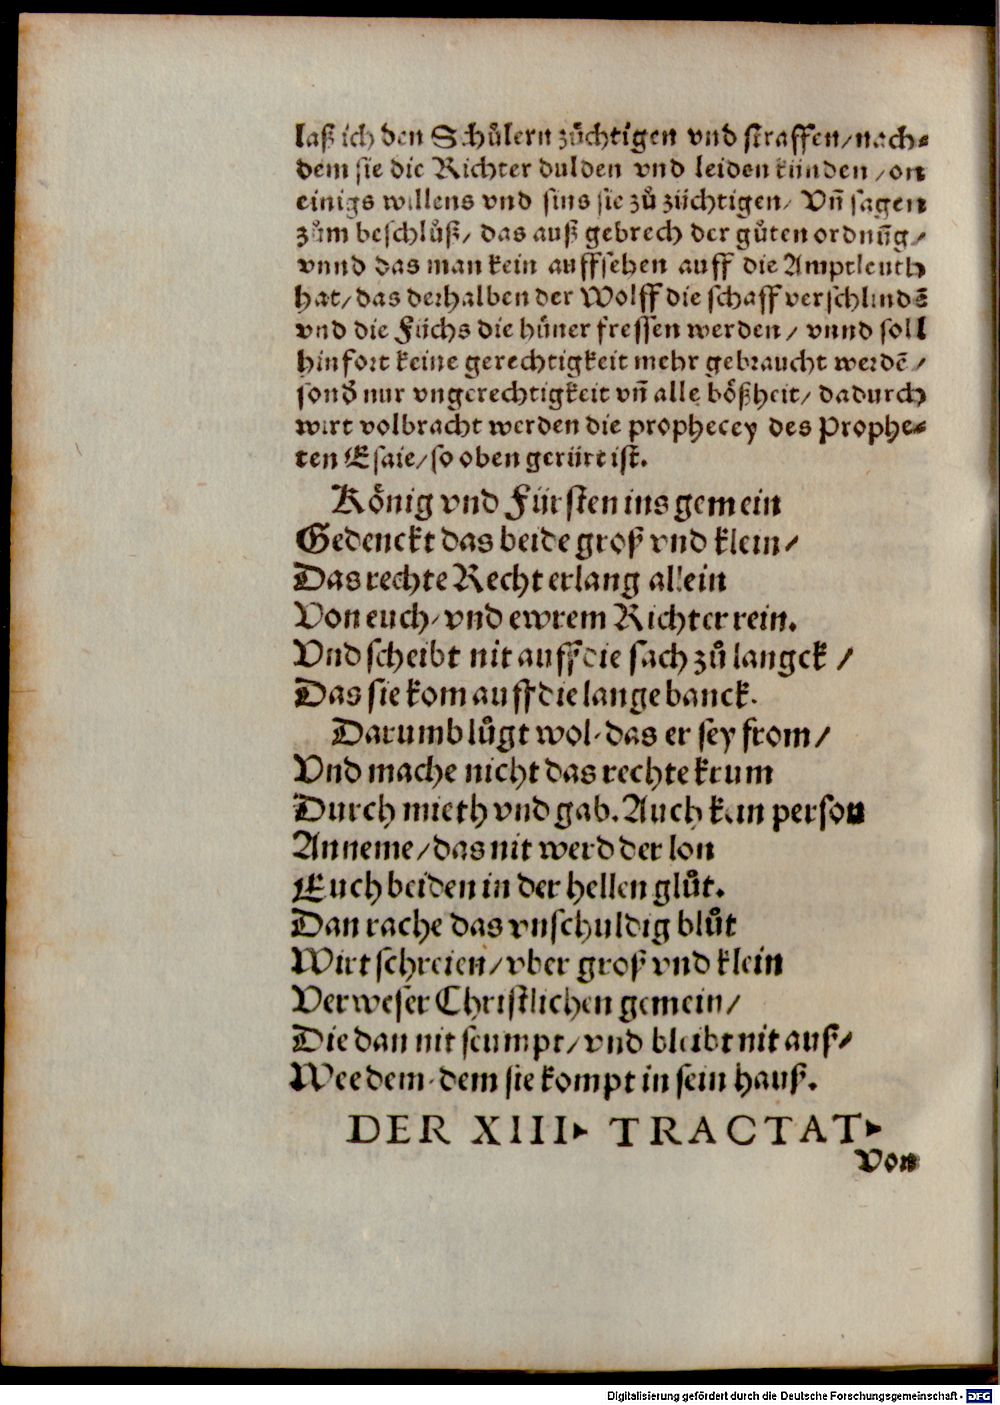 laß ich den Schůlern zůchtigen vnd straffen/nach⸗
dem sie die Richter dulden vnd leiden künden/on
einigs willens vnd sins sie zů züchtigen/ Vn̄ sagen
zům beschlůß/ das auß gebrech der gůten ordnūg/
vnnd das man kein auffsehen auff die Amptleuth
hat/das derhalben der Wolff die schaff verschlindē
vnd die Füchs die hüner fressen werden/ vnnd soll
hinfort keine gerechtigkeit mehr gebraucht werdē/
sonď nur vngerechtigkeit vn̄ alle bößheit/ dadurch
wirt volbracht werden die prophecey des Prophe⸗
ten Esaie/so oben gerürt ist.
König vnd Fürsten ins gemein
Gedenckt das beide groß vnd klein/
Das rechte Recht erlang allein
Von euch/vnd ewrem Richter rein.
Vnd scheibt nit auff die sach zů langck/
Das sie kom auff die lange banck.
Darumb lůgt wol/das er sey from/
Vnd mache nicht das rechte krum
Durch mieth vnd gab. Auch kein person
Anneme/das nit werd der lon
Euch beiden in der hellen glůt.
Dan rache das vnschuldig blůt
Wirt schreien/vber groß vnd klein
Verweser Christlichen gemein/
Die dan nit seumpt/vnd bleibt nit auß/
Wee dem/dem sie kompt in sein hauß.
DER XIII. TRACTAT.
Von
Digitalisierung gefördert durch die Deutsche Forschungsgemeinschaft - DFG